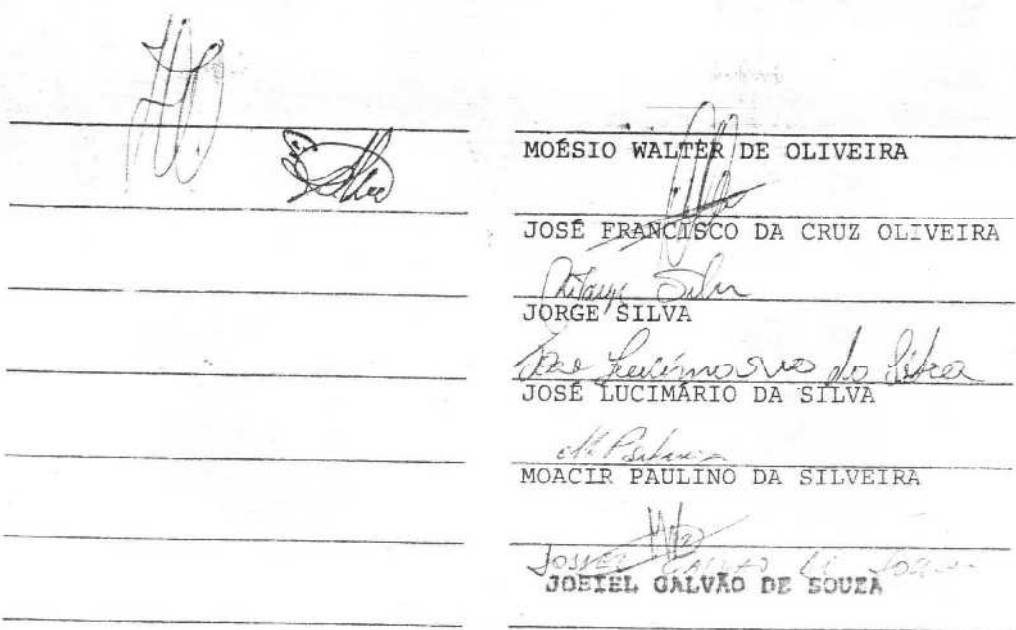 MOÉSIO WALTER DE OLIVEIRA
JOSÉ FRANCISCO DA CRUZ OLIVEIRA
Silva
JORGE SILVA
José Lucimário da Silva
JOSÉ LUCIMÁRIO DA SILVA
MOACIR PAULINO DA SILVEIRA
GALVÃO DE
JOSIEL GALVÃO DE SOUZA